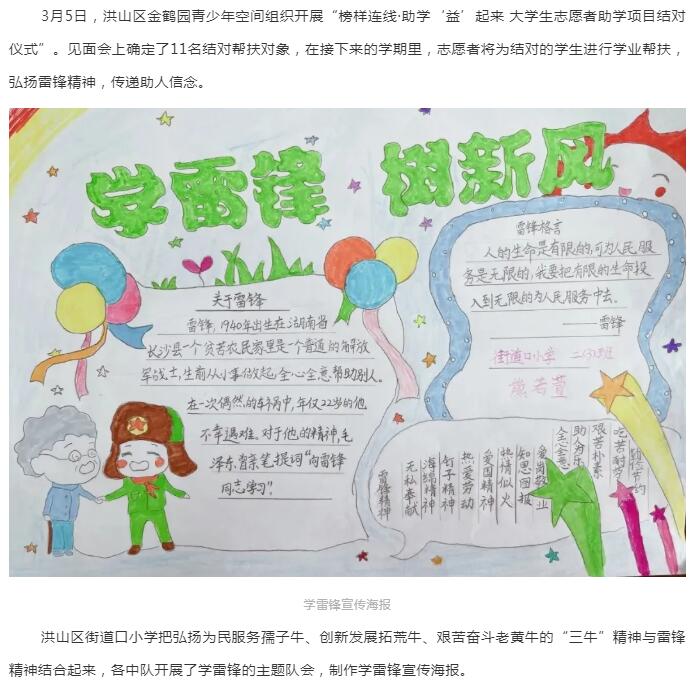 3月5日，洪山区金鹤园青少年空间组织开展“榜样连线·助学‘益’起来 大学生志愿者助学项目结对
仪式”。见面会上确定了11名结对帮扶对象，在接下来的学期里，志愿者将为结对的学生进行学业帮扶，
弘扬雷锋精神，传递助人信念。
学雷锋 树新风
关于雷锋
雷锋，1940年出生在湖南省
长沙县一个贫苦农民家里是一个普通的解放
军战士，生前从小事做起，全心全意帮助别人。
在一次偶然的车祸中，年仅22岁的他
不幸遇难。对于他的精神，毛
泽东曾亲笔提词“向雷锋
同志学习”。
雷锋格言
人的生命是有限的，可为人民服
务是无限的，我要把有限的生命投
入到无限的为人民服务中去。
——雷锋
街道口小学 二(3)班
熊若萱
雷锋精神
无私奉献
海绵精神
钉子精神
热爱劳动
爱国精神
热情似火
知恩图报
爱岗敬业
全心全意
助人为乐
艰苦朴素
吃苦耐劳
勤俭节约
学雷锋宣传海报
洪山区街道口小学把弘扬为民服务孺子牛、创新发展拓荒牛、艰苦奋斗老黄牛的“三牛”精神与雷锋
精神结合起来，各中队开展了学雷锋的主题队会，制作学雷锋宣传海报。